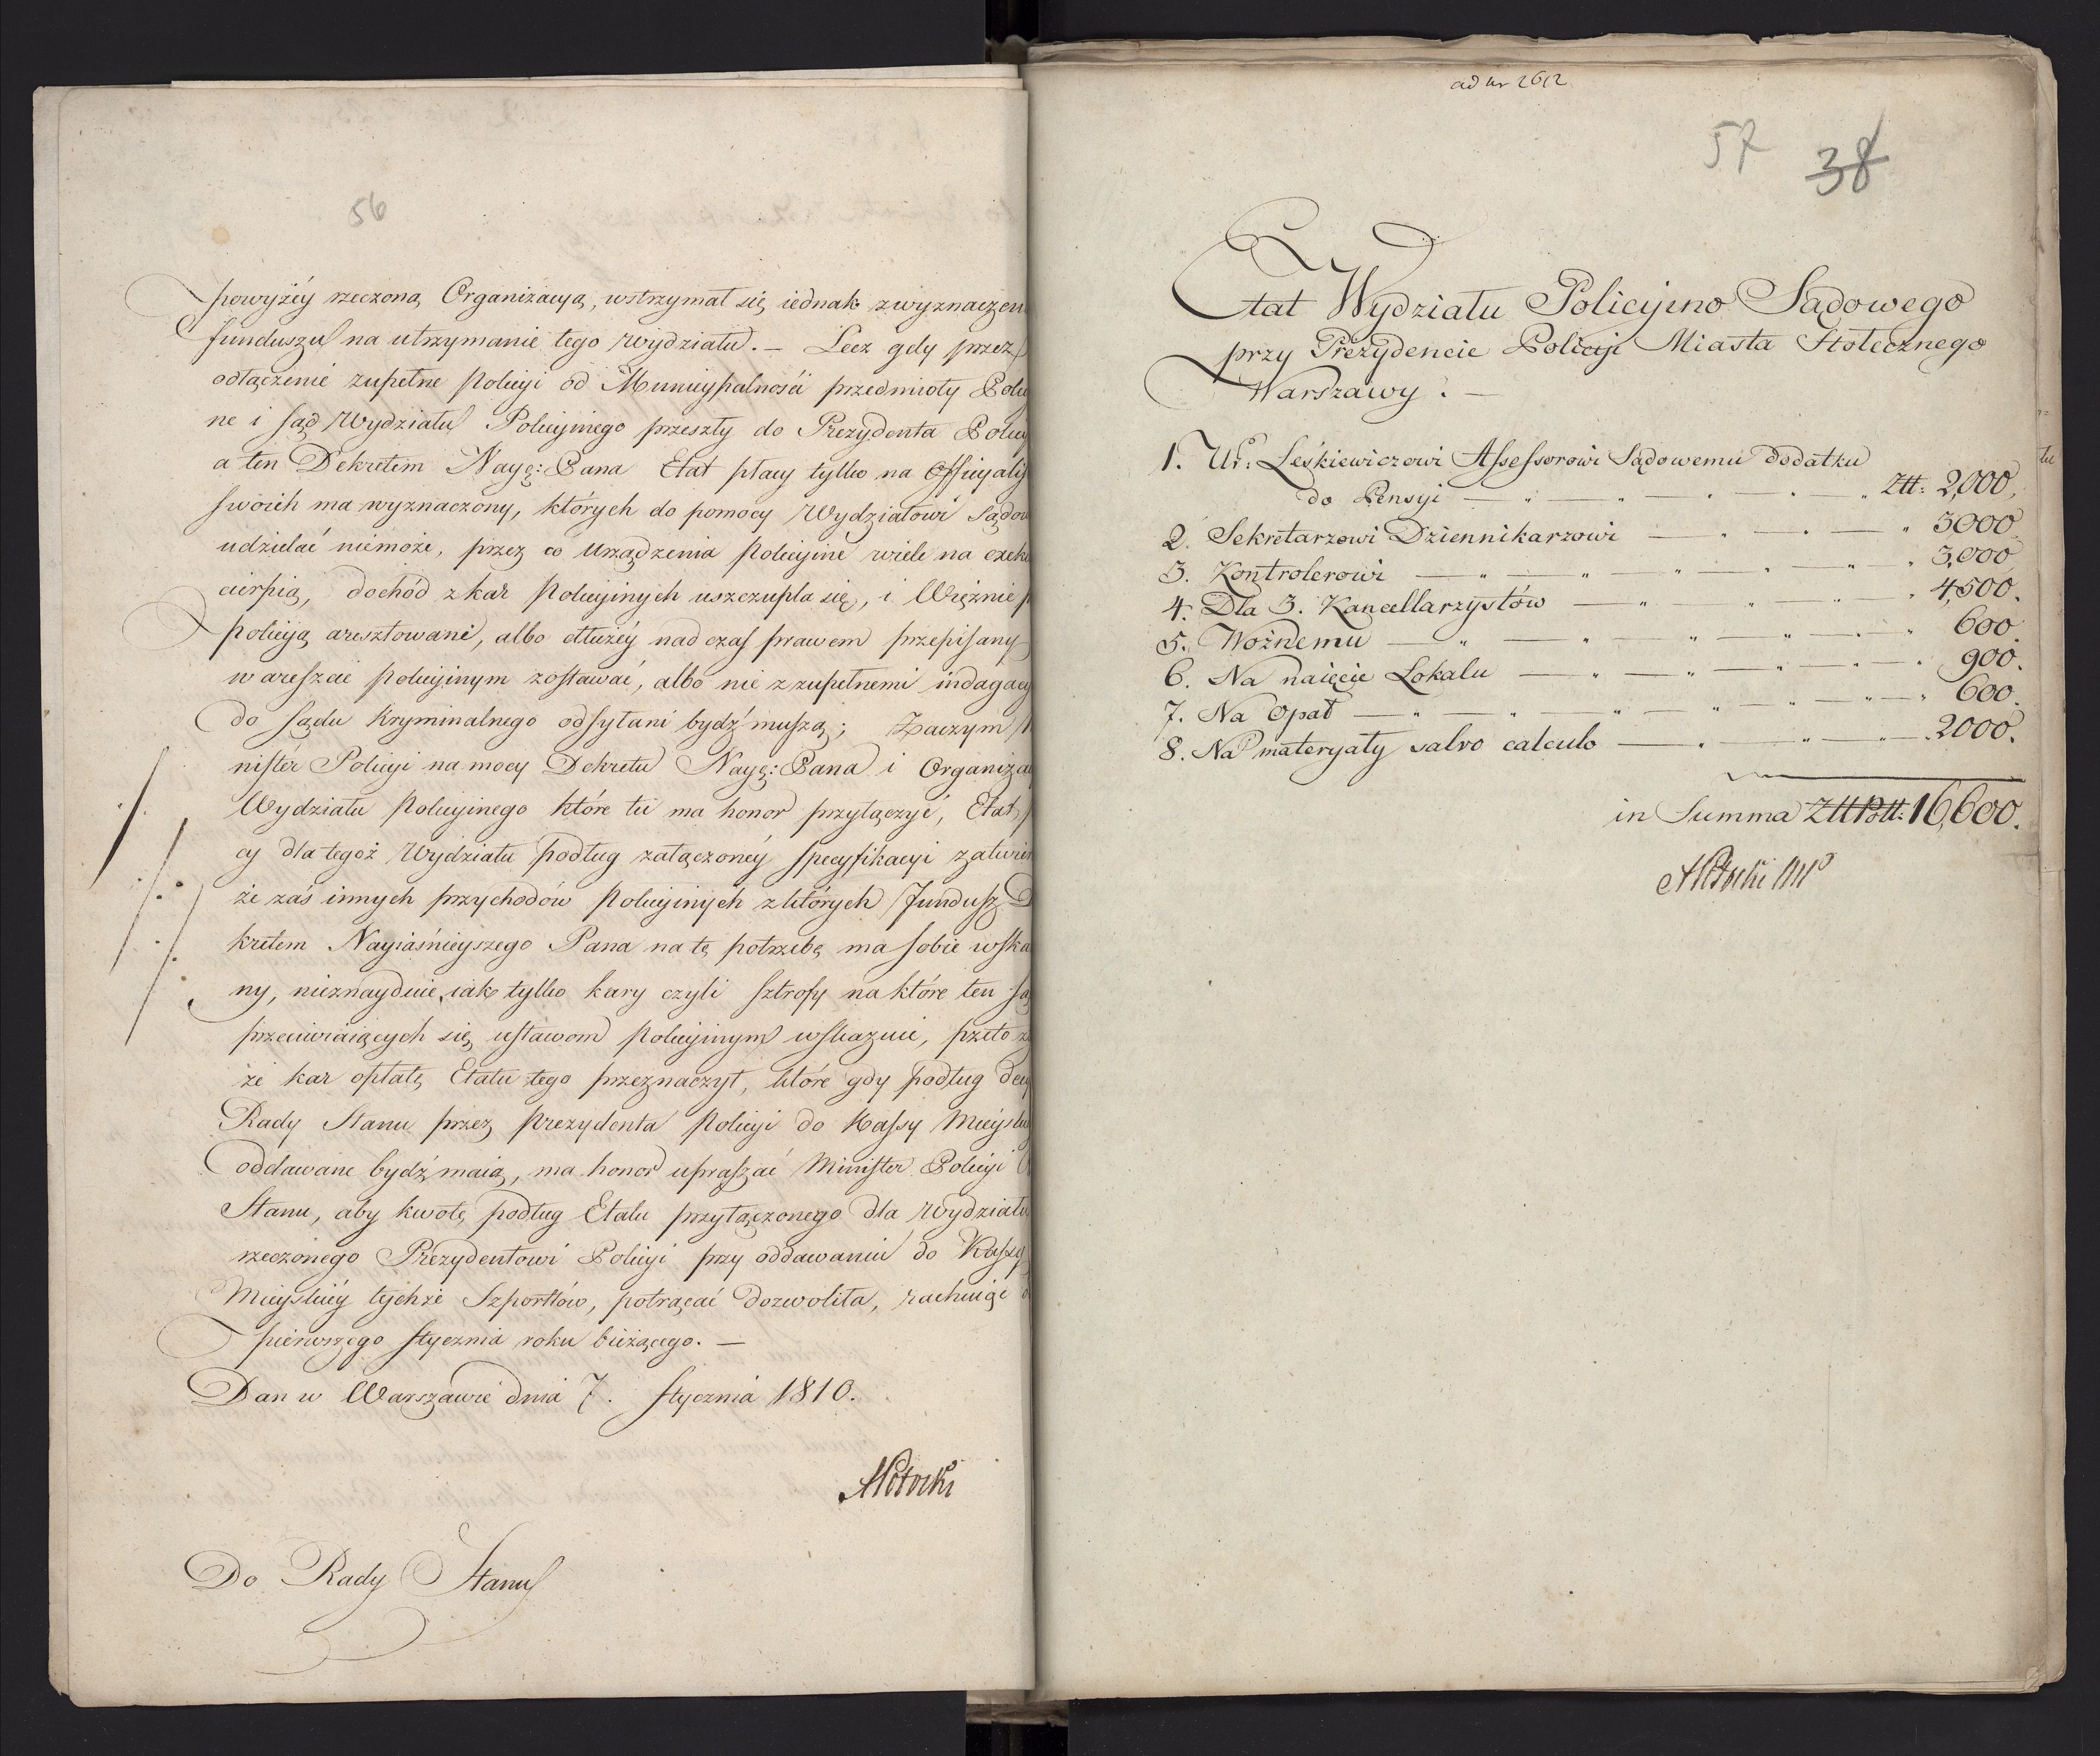 56
powyżéy rzeczoną Organizacyą, wstrzymał się iednak z wyznaczen
funduszu na utrzymanie tego Wydziału. – Lecz gdy przez
odłączenie zupełne Policyi od Municypalności przedmioty Poli
ne i sąd Wydziału Policyinego przeszły do Prezydenta Policy
a ten Dekretem Nayę: Pana Etat płacy tylko na Officyalis
swoich ma wyznaczony, których do pomocy Wydziałowi Sądow
udzielać niemoże, przez co Urządzenia Policyine wiele na exeku
cierpią, dochód z kar Policyinych uszczupla się, i Więznie p
policyą aresztowani, albo dłużéy nad czas prawem przepisany
w areszcie policyinym zostawać, albo nie z zupełnemi indagacy
do sądu kryminalnego odsyłani bydź muszą; Zaczym
nister Policyi na mocy Dekretu Nayę: Pana i Organiza
Wydziału Policyinego które tu ma honor przyłączyć, Etat
cy dla tegoż Wydziału podług załączonéy specyfikacyi zatwier
że zaś innych przychodów Policyinych z których Fundusz D
kretem Nayiaśnieyszego Pana na tę potrzebę ma sobie wska
ny, nieznayduie, iak tylko kary czyli sztrofy na które ten są
przeciwiaiących się ustawom policyinym wskazuie, przeto z
że kar opłatę Etatu tego przeznaczył, które gdy podług decy
Rady Stanu przez Prezydenta Policyi do Kassy Mieyski
oddawane bydź maią, ma honor upraszać Minister Policyi
Stanu, aby kwotę podług Etatu przyłączonego dla Wydziału
rzeczonego Prezydentowi Policyi przy oddawaniu do Kassy
Mieyskiéy tychże Szportlów, potrącać dozwoliła, rachuiąc o
pierwszego stycznia roku bieżącego. –
Dan w Warszawie dnia 7. stycznia 1810.
APotocki
Do Rady Stanu
ad nr 2612
57 38
Etat Wydziału Policyino Sądowego
przy Prezydencie Policyi Miasta Stołecznego
Warszawy. –
1. Ur: Leśkiewiczowi Assessorowi Sądowemu dodatku
do Pensyi — " — " — " — " Ztt: 2,000.
2. Sekretarzowi Dziennikarzowi — " — " — " 3000.
3. Kontrolerowi — " — " — " — " — " 3,000.
4. Dla 3. Kancellarzystów — " — " — " 4,500.
5. Woźnemu — " — " — " — " — " 600.
6. Na naięcie Lokalu — " — " — " — " 900.
7. Na Opał — " — " — " — " — " 600.
8. Na materyały salvo calculo — " — " — 2000.
in Summa 16,600.
APotocki MP